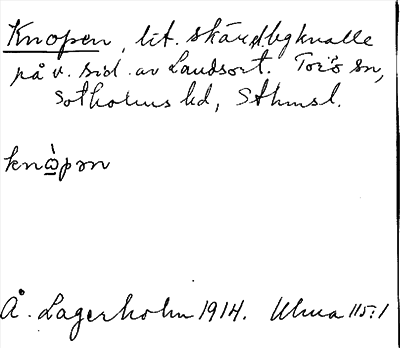 Knopen, lit. skär, bgknalle
på v. sid. av Landsort. Torö sn,
Sotholms hd, Sthmsl.
knὼpən
Å. Lagerholm 1914. Ulma 115:1